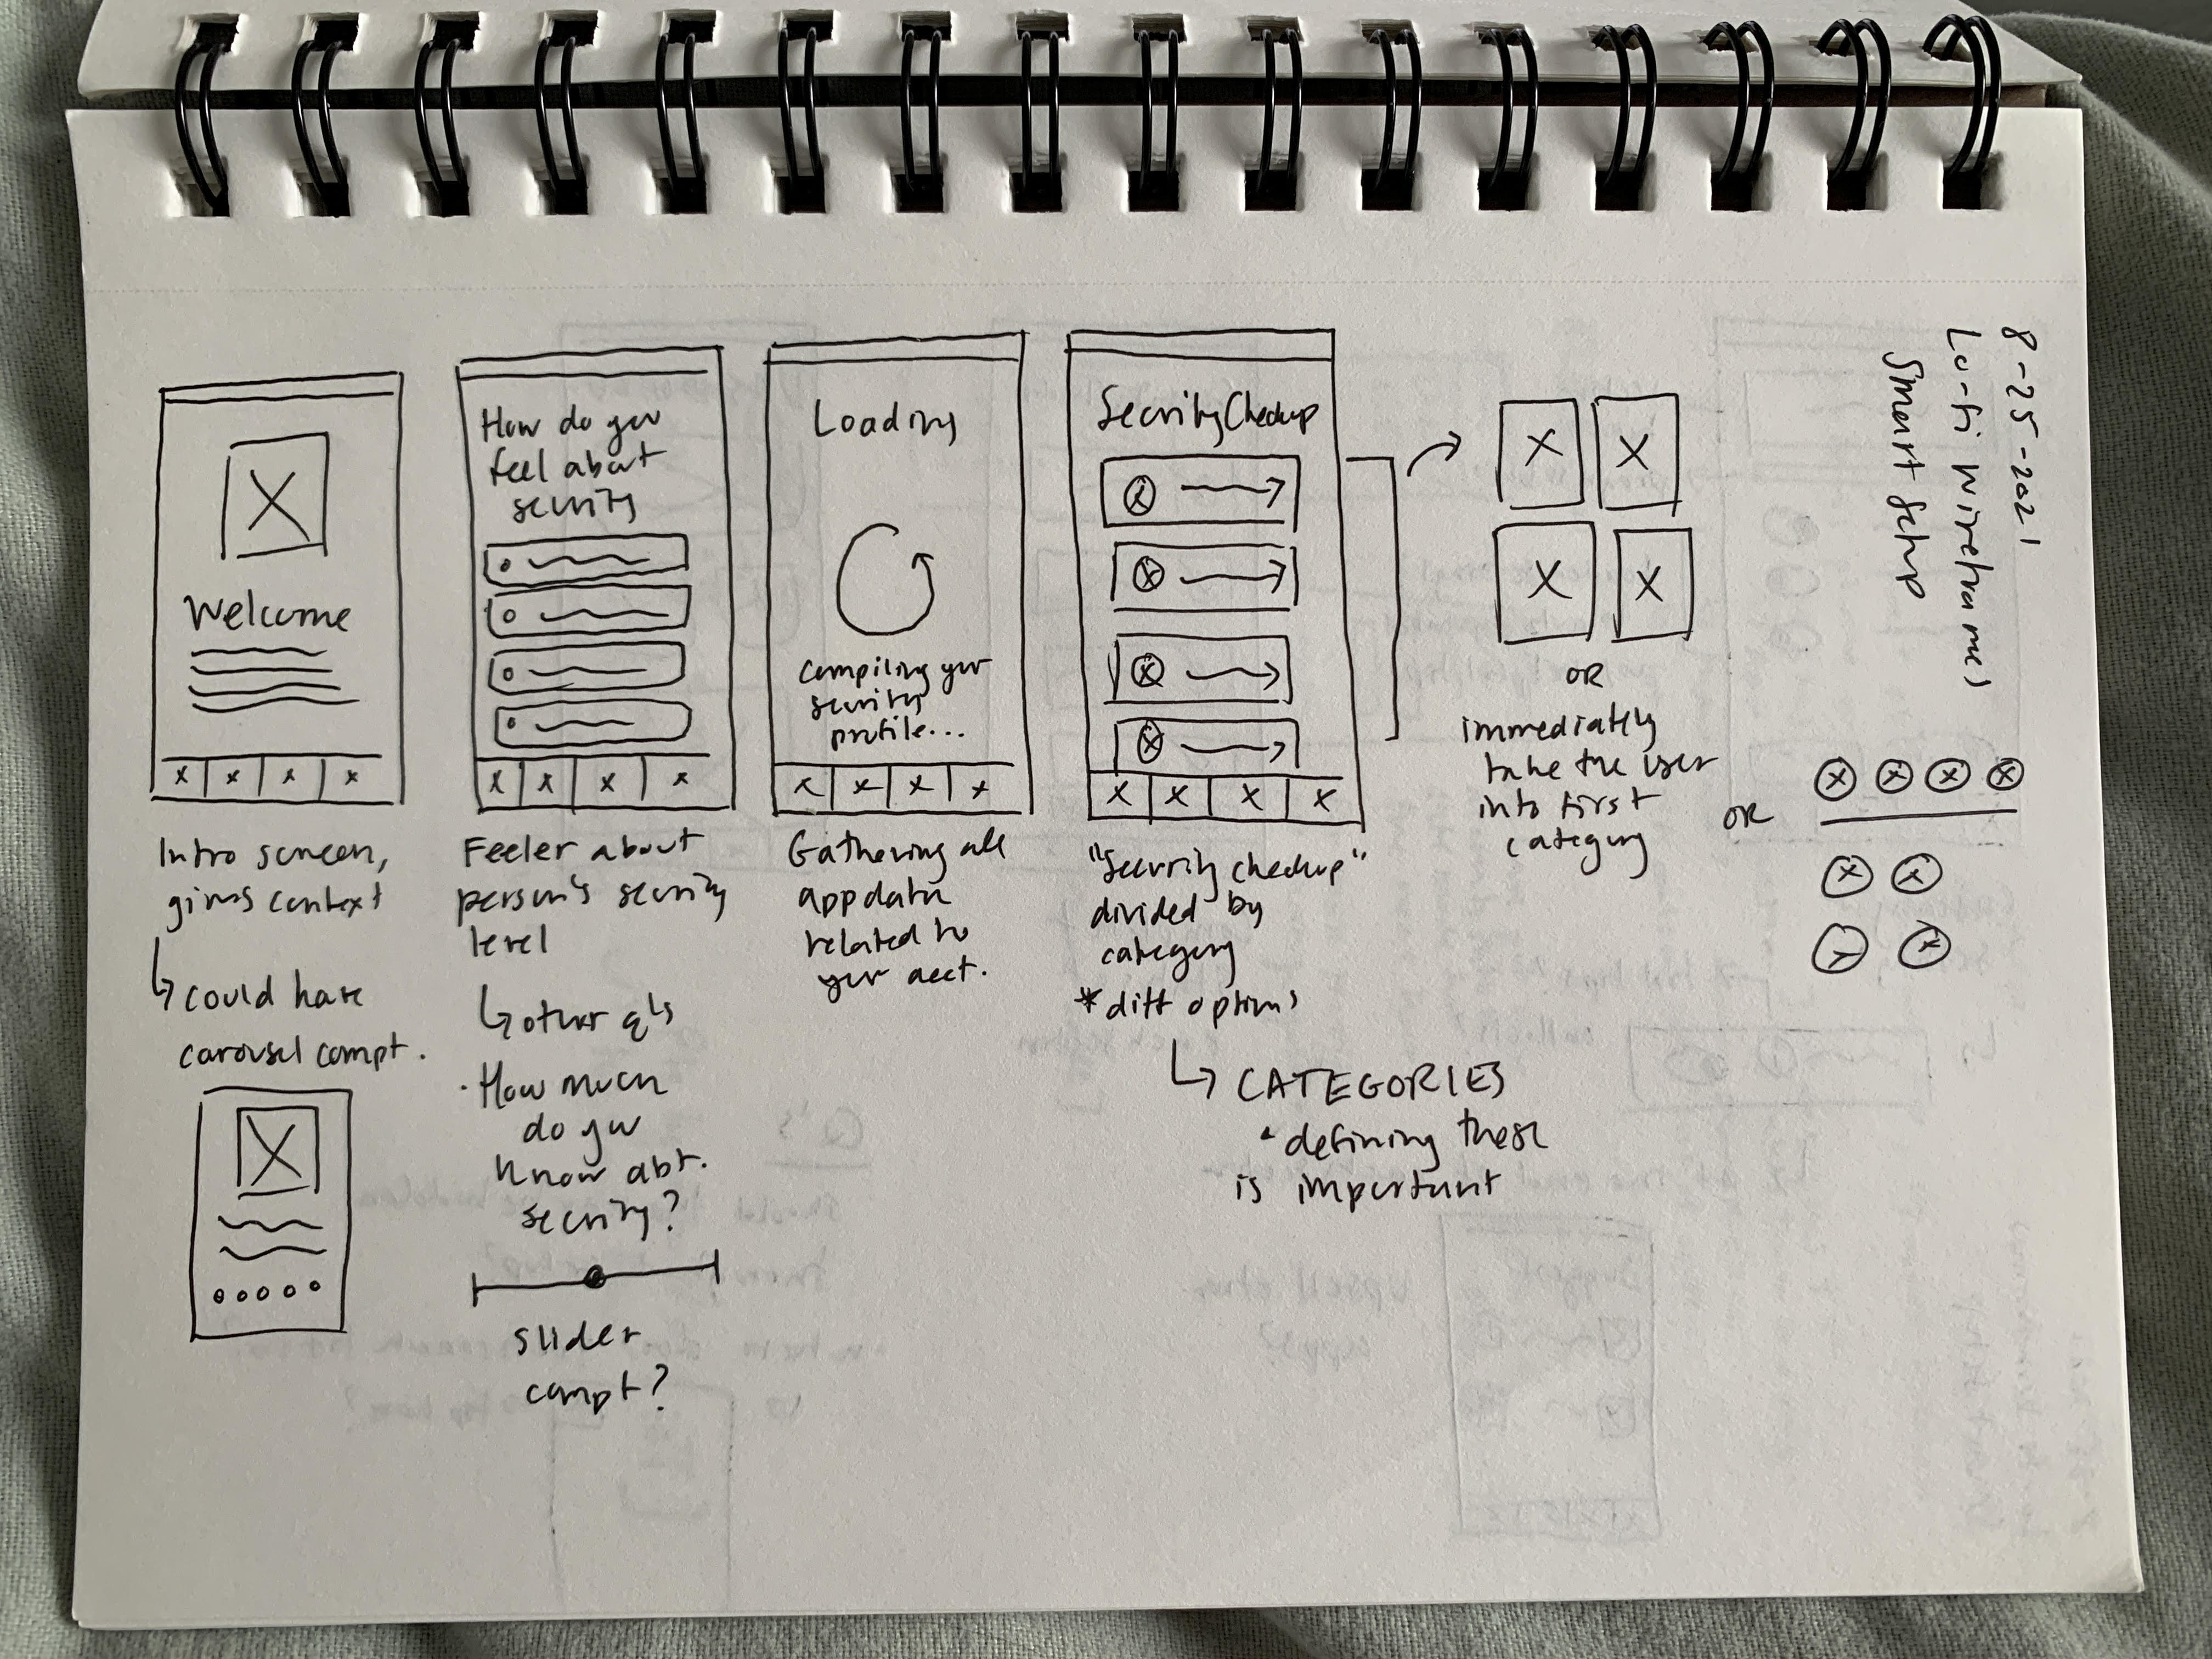 8-25-2021
Lo-fi Wireframes
Smart Setup
Welcome
Intro screen,
gives context
↳ could have
carousel compt.
How do you
feel about
security
Feeler about
person's security
level
↳ other q's
· How much
do you
know abt.
security?
slider
compt?
Loading
compiling your
security
profile...
Gathering all
app data
related to
your acct.
Security Checkup
"Security checkup"
divided by
category
* diff options
↳ CATEGORIES
• defining these
is important
OR
immediately
take the user
into first
category
OR